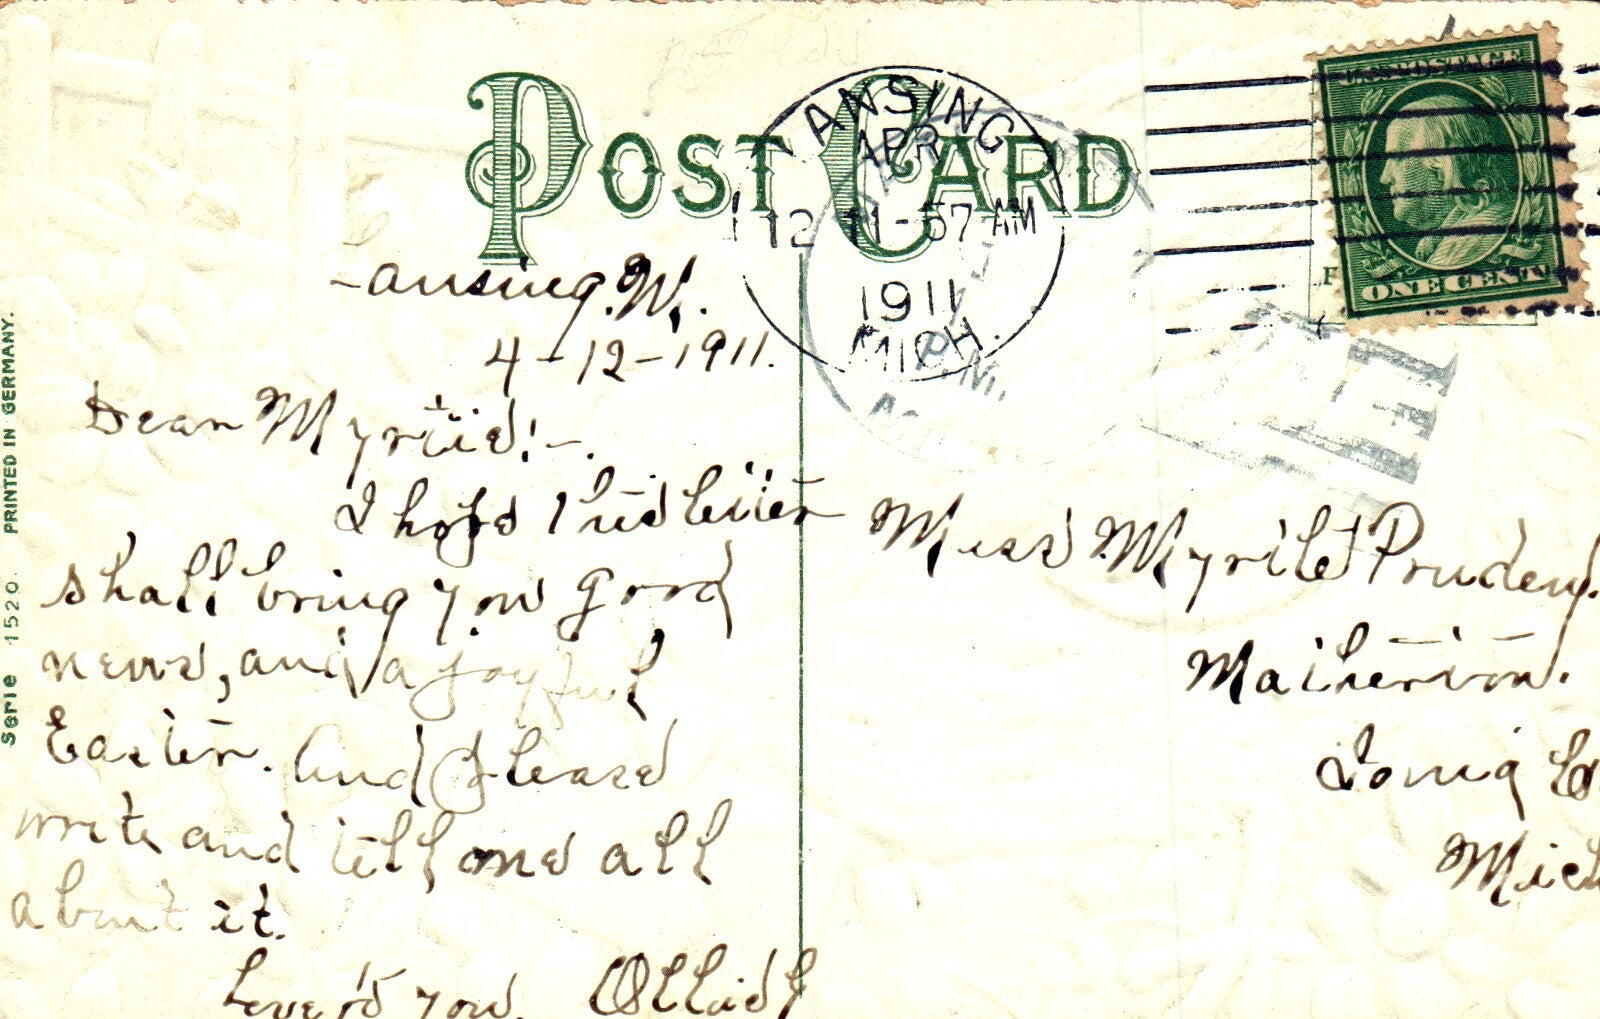 POST CARD
LANSING
APR
12 11-57 AM
1911
MICH.
U.S. POSTAGE
ONE CENT
Lansing. M.
4-12-1911.
Dear Myrtie!-.
I hope this letter
shall bring you good
news, and a joyful
Easter. And please
write and tell me all
about it.
Love to you.
Miss Myrtle Prudeny.
Matherton.
Ionia Co
Mich
Serie 1520. PRINTED IN GERMANY.